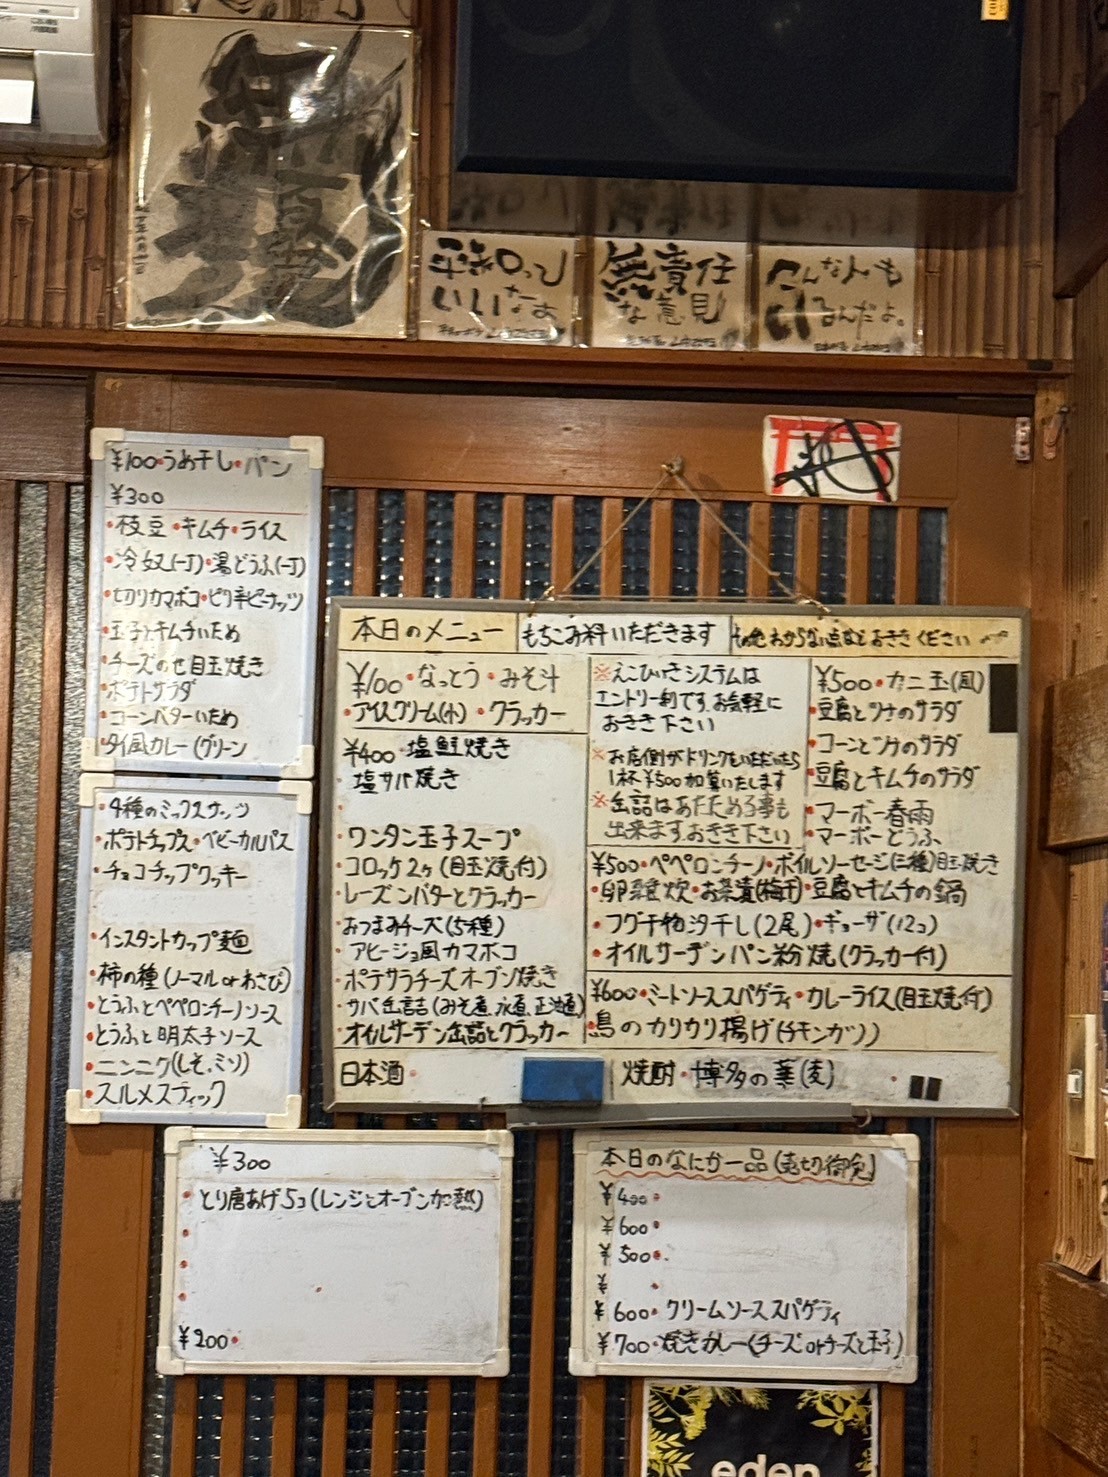 平和って
いいなあ
無責任
な意見
こんなんも
いるんだよ。
¥100・うめ干し・パン
¥300
・枝豆・キムチ・ライス
・冷奴(一丁)・湯どうふ(一丁)
・切りカマボコ・ピリ辛ピーナッツ
・玉子とキムチいため
・チーズのせ目玉焼き
・ポテトサラダ
・コーンバターいため
・タイ風カレー(グリーン
・4種のミックスナッツ
・ポテトチップス・ベビーカルパス
・チョコチップクッキー
・インスタントカップ麺
・柿の種(ノーマルorわさび)
・とうふとペペロンチーノソース
・とうふと明太子ソース
・ニンニク(しそ.ミソ)
・スルメスティック
本日のメニュー
もちこみ料いただきます
その他わからない点などおききください
¥100・なっとう・みそ汁
・アイスクリーム(小)・クラッカー
¥400・塩鮭焼き
塩サバ焼き
・ワンタン玉子スープ
・コロッケ2ヶ(目玉焼付)
・レーズンバターとクラッカー
・おつまみチーズ(5種)
・アヒージョ風カマボコ
・ポテサラチーズオーブン焼き
・サバ缶詰(みそ煮.水煮.正油煮)
・オイルサーデン缶詰とクラッカー
※えこひいきシステムは
エントリー制です.お気軽に
おきき下さい
※お店側がドリンクをいただいたら
1杯¥500加算いたします
※缶詰はあたためる事も
出来ます.おきき下さい
¥500・カニ玉(風)
・豆腐とツナのサラダ
・コーンとツナのサラダ
・豆腐とキムチのサラダ
・マーボー春雨
・マーボーどうふ
¥500・ペペロンチーノ・ボイルソーセージ(三種)目玉焼き
・卵雑炊・お茶漬(梅干)・豆腐とキムチの鍋
・フグ干物汐干し(2尾)・ギョーザ(12コ)
・オイルサーデンパン粉焼(クラッカー付)
¥600・ミートソーススパゲティ・カレーライス(目玉焼付)
・鳥のカリカリ揚げ(チキンカツ)
日本酒・
焼酎・博多の華(麦)
¥300
・とり唐あげ5コ(レンジとオーブン加熱)
¥200・
本日のなにか一品(売切御免)
¥400・
¥600・
¥500・
¥・
¥600・クリームソーススパゲティ
¥700・焼きカレー(チーズorチーズと玉子)
eden